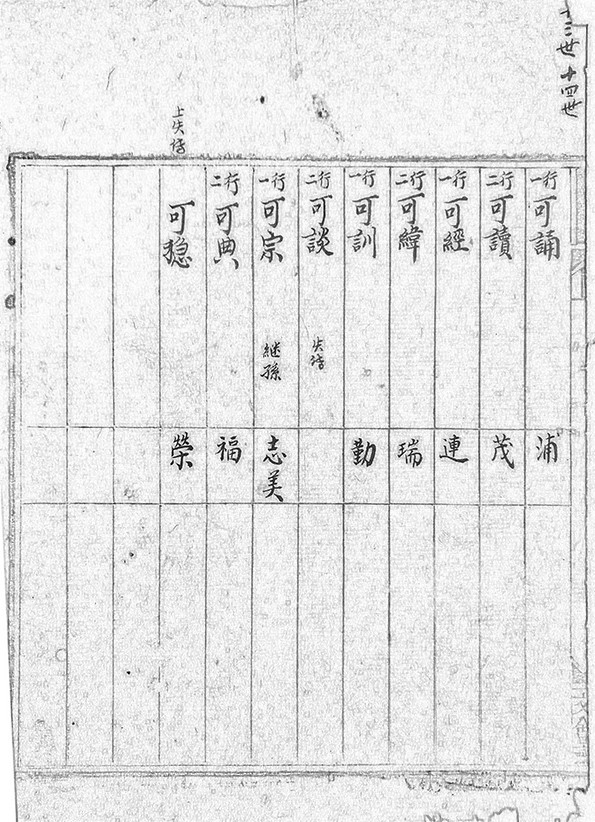 十三世 十四世
一行 可誦 浦
二行 可讀 茂
一行 可經 連
二行 可緯 瑞
一行 可訓 勤
二行 可談 失傳
一行 可宗 継孫 志美
二行 可典 福
上失傳 可稳 榮